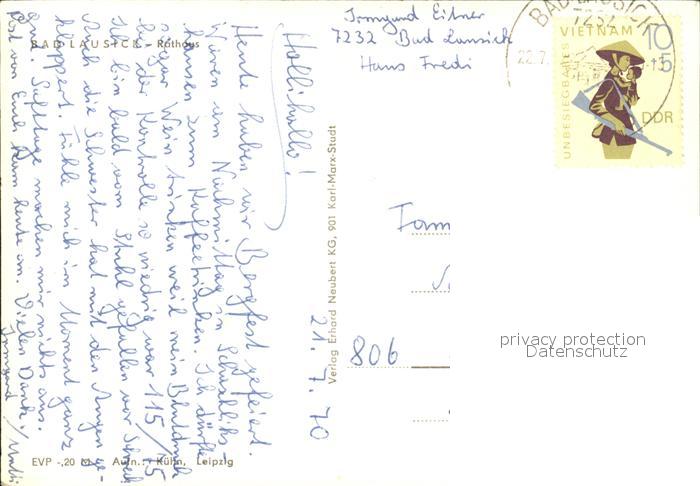 BAD LAUSICK - Rathaus
Hallihallo!
Heute haben wir Bergfest gefeiert.
Waren am Nachmittag in
hausen zum Kaffeetrinken. Ich durfte
sogar Wein trinken weil mein Blutdruck
bei der Kontrolle so niedrig war 115/75
Ich bin bald vom Stuhl gefallen vor Schreck
Auch die Schwester hat mit den Augen ge-
klappert. Fühle mich im Moment ganz
gut. Safttage machen mir nichts aus.
Post von Euch kam heute an. Vielen Dank!
Irmgard
21.7.70
EVP -,20 M Aufn.: Kühn, Leipzig
Verlag Erhard Neubert KG, 901 Karl-Marx-Stadt
Irmgard Eitner
7232 Bad Lausick
Haus Fredi
BAD LAUSICK
7232
22.7.
UNBESIEGBARES VIETNAM
10
+5
DDR
Fam
806
privacy protection
Datenschutz